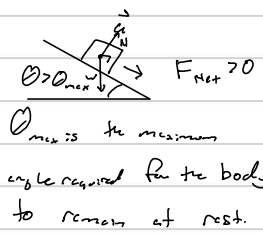 N
θ>θmax
w
F Net >0
θmax is the maximum
angle required for the body
to remain at rest.